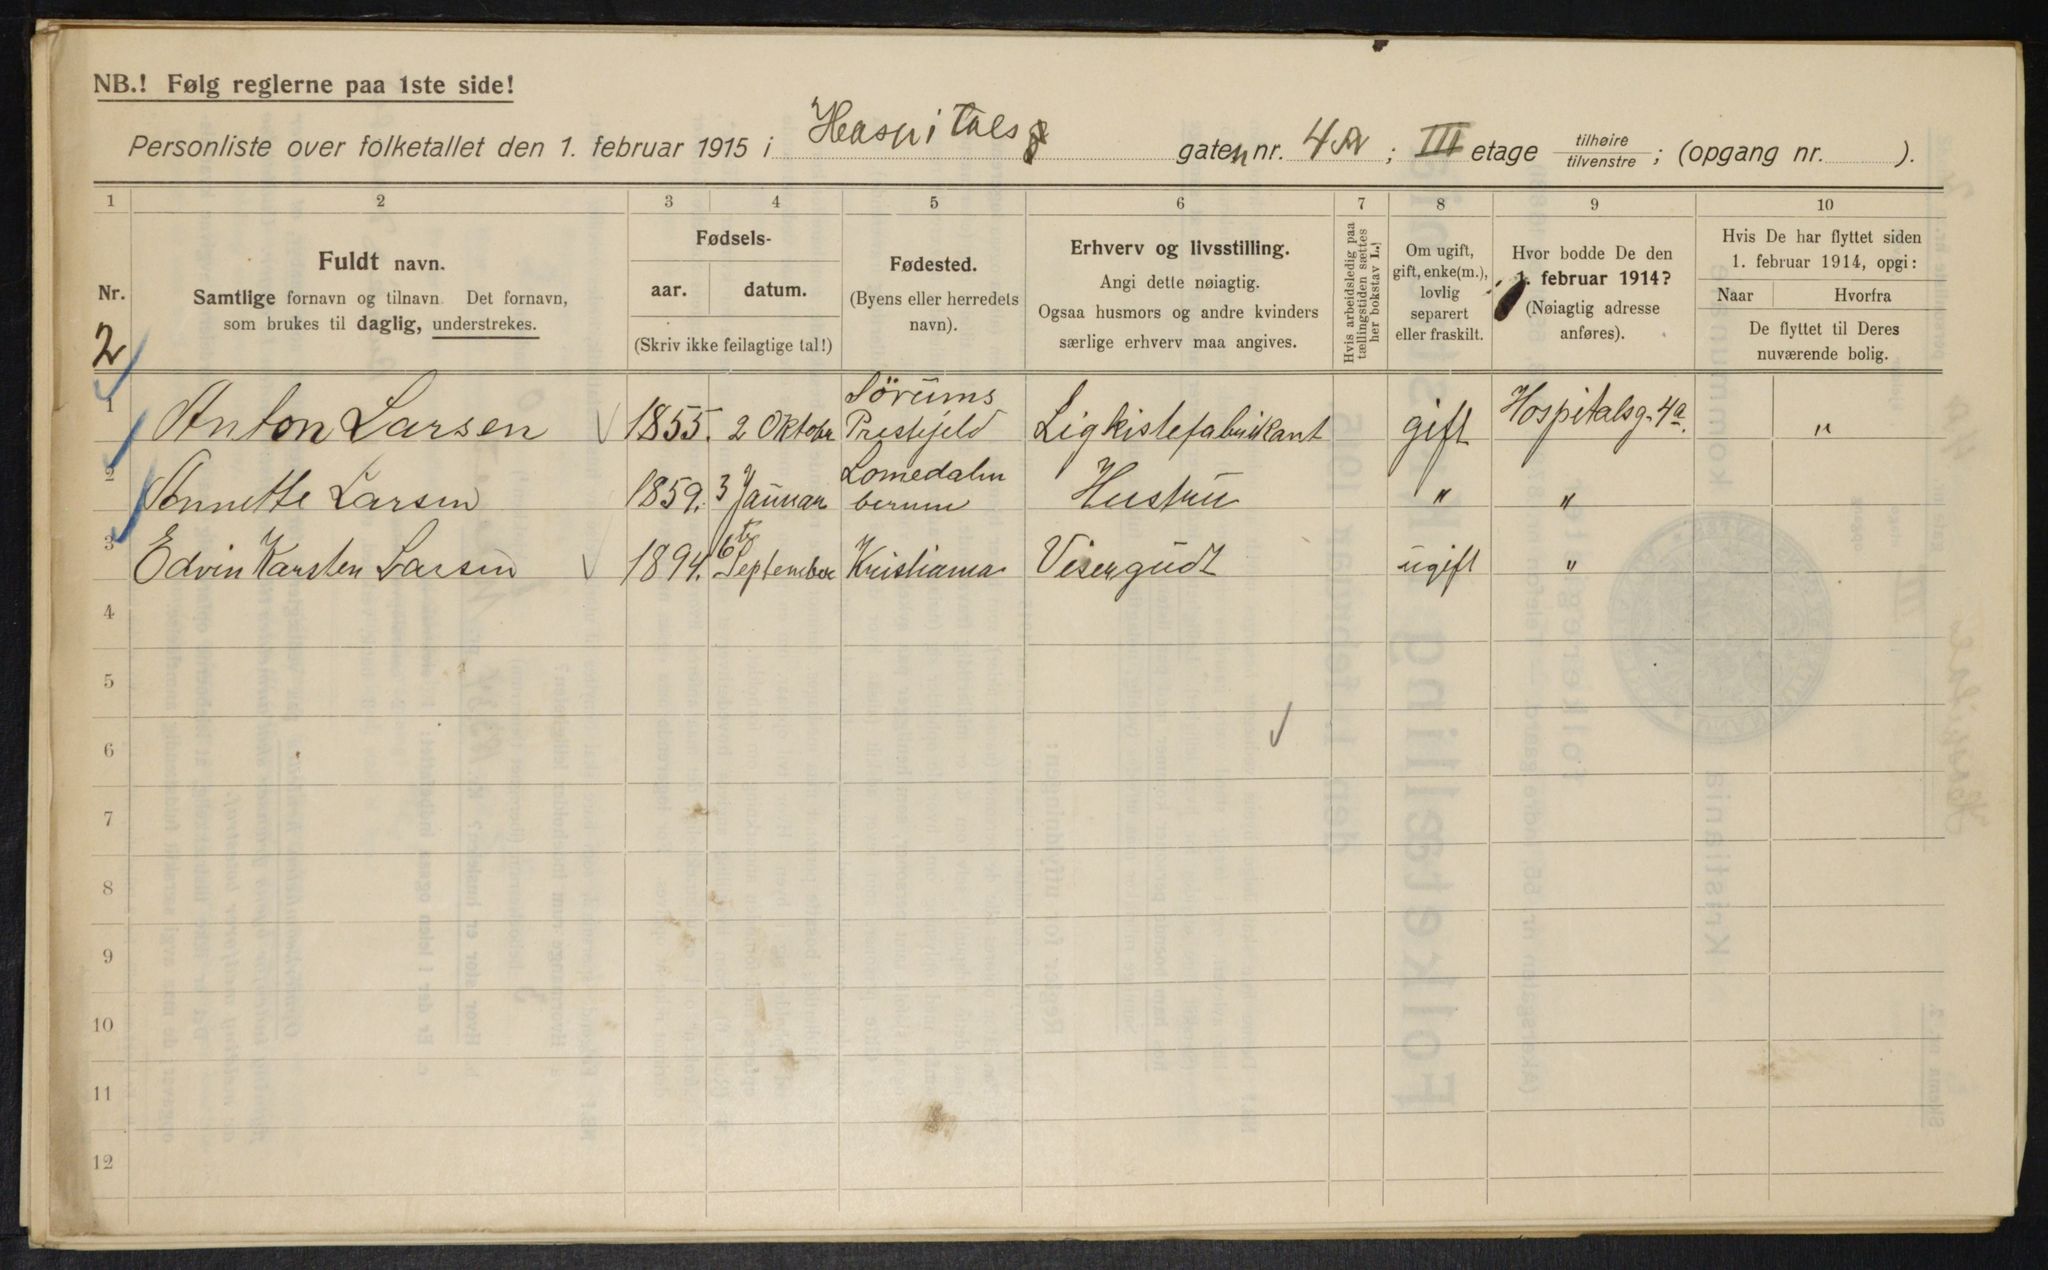 NB.! Følg reglerne paa 1ste side!
Personliste over folketallet den 1. februar 1915 i Hospitalsg gaten nr. 4a; III etage tilhøire tilvenstre; (opgang nr. ).
1 2 3 4 5 6 7 8 9 10
Nr.
Fuldt navn.
Samtlige fornavn og tilnavn. Det fornavn, som brukes til daglig, understrekes.
Fødsels-
aar. datum.
(Skriv ikke feilagtige tal!)
Fødested.
(Byens eller herredets navn).
Erhverv og livsstilling.
Angi dette nøiagtig.
Ogsaa husmors og andre kvinders særlige erhverv maa angives.
Hvis arbeidsledig paa tællingstiden sættes her bokstav L.!
Om ugift, gift, enke(m.), lovlig separert eller fraskilt.
Hvor bodde De den 1. februar 1914?
(Nøiagtig adresse anføres).
Hvis De har flyttet siden 1. februar 1914, opgi:
Naar Hvorfra
De flyttet til Deres nuværende bolig.
2
1 Anton Larsen 1855. 2 Oktobr Sörums Prestejeld Ligkistefabrikant gift Hospitalsg. 4a. "
2 Annette Larsen 1859. 3 Januar Lomedalen berum Hustru " "
3 Edvin Karsten Larsen 1894. 6te September Kristiania Visergudt ugift "
4
5
6
7
8
9
10
11
12